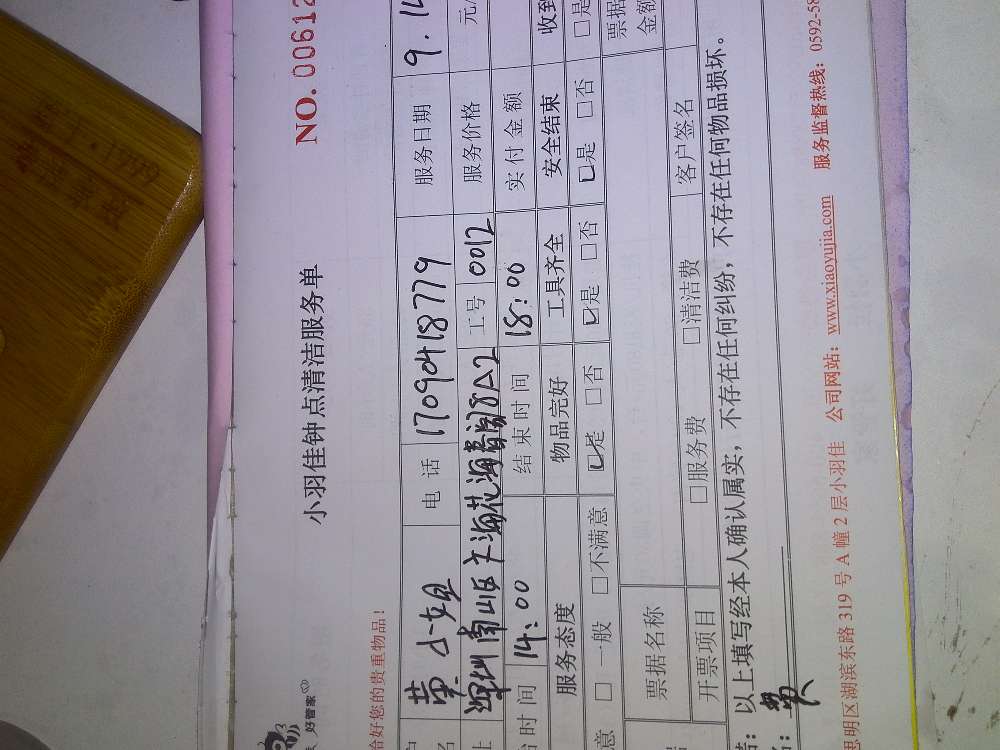 好管家
小羽佳钟点清洁服务单
NO. 00612
合好您的贵重物品!
黄小姐 电话 17090418779 服务日期 9.14
深圳南山区 海花海 8A2 工号 0012 服务价格 元/
时间 14:00 结束时间 18:00 实付金额
服务态度 物品完好 工具齐全 安全结束 收到
意 □ 一般 □不满意 ☑是 □否 ☑是 □否 ☑是 □否 □是
票据名称 票据金额
开票项目 □服务费 □清洁费 客户签名
: 以上填写经本人确认属实,不存在任何纠纷,不存在任何物品损坏。
思明区湖滨东路 319 号 A 幢 2 层小羽佳 公司网站: www.xiaoyujia.com 服务监督热线: 0592-58